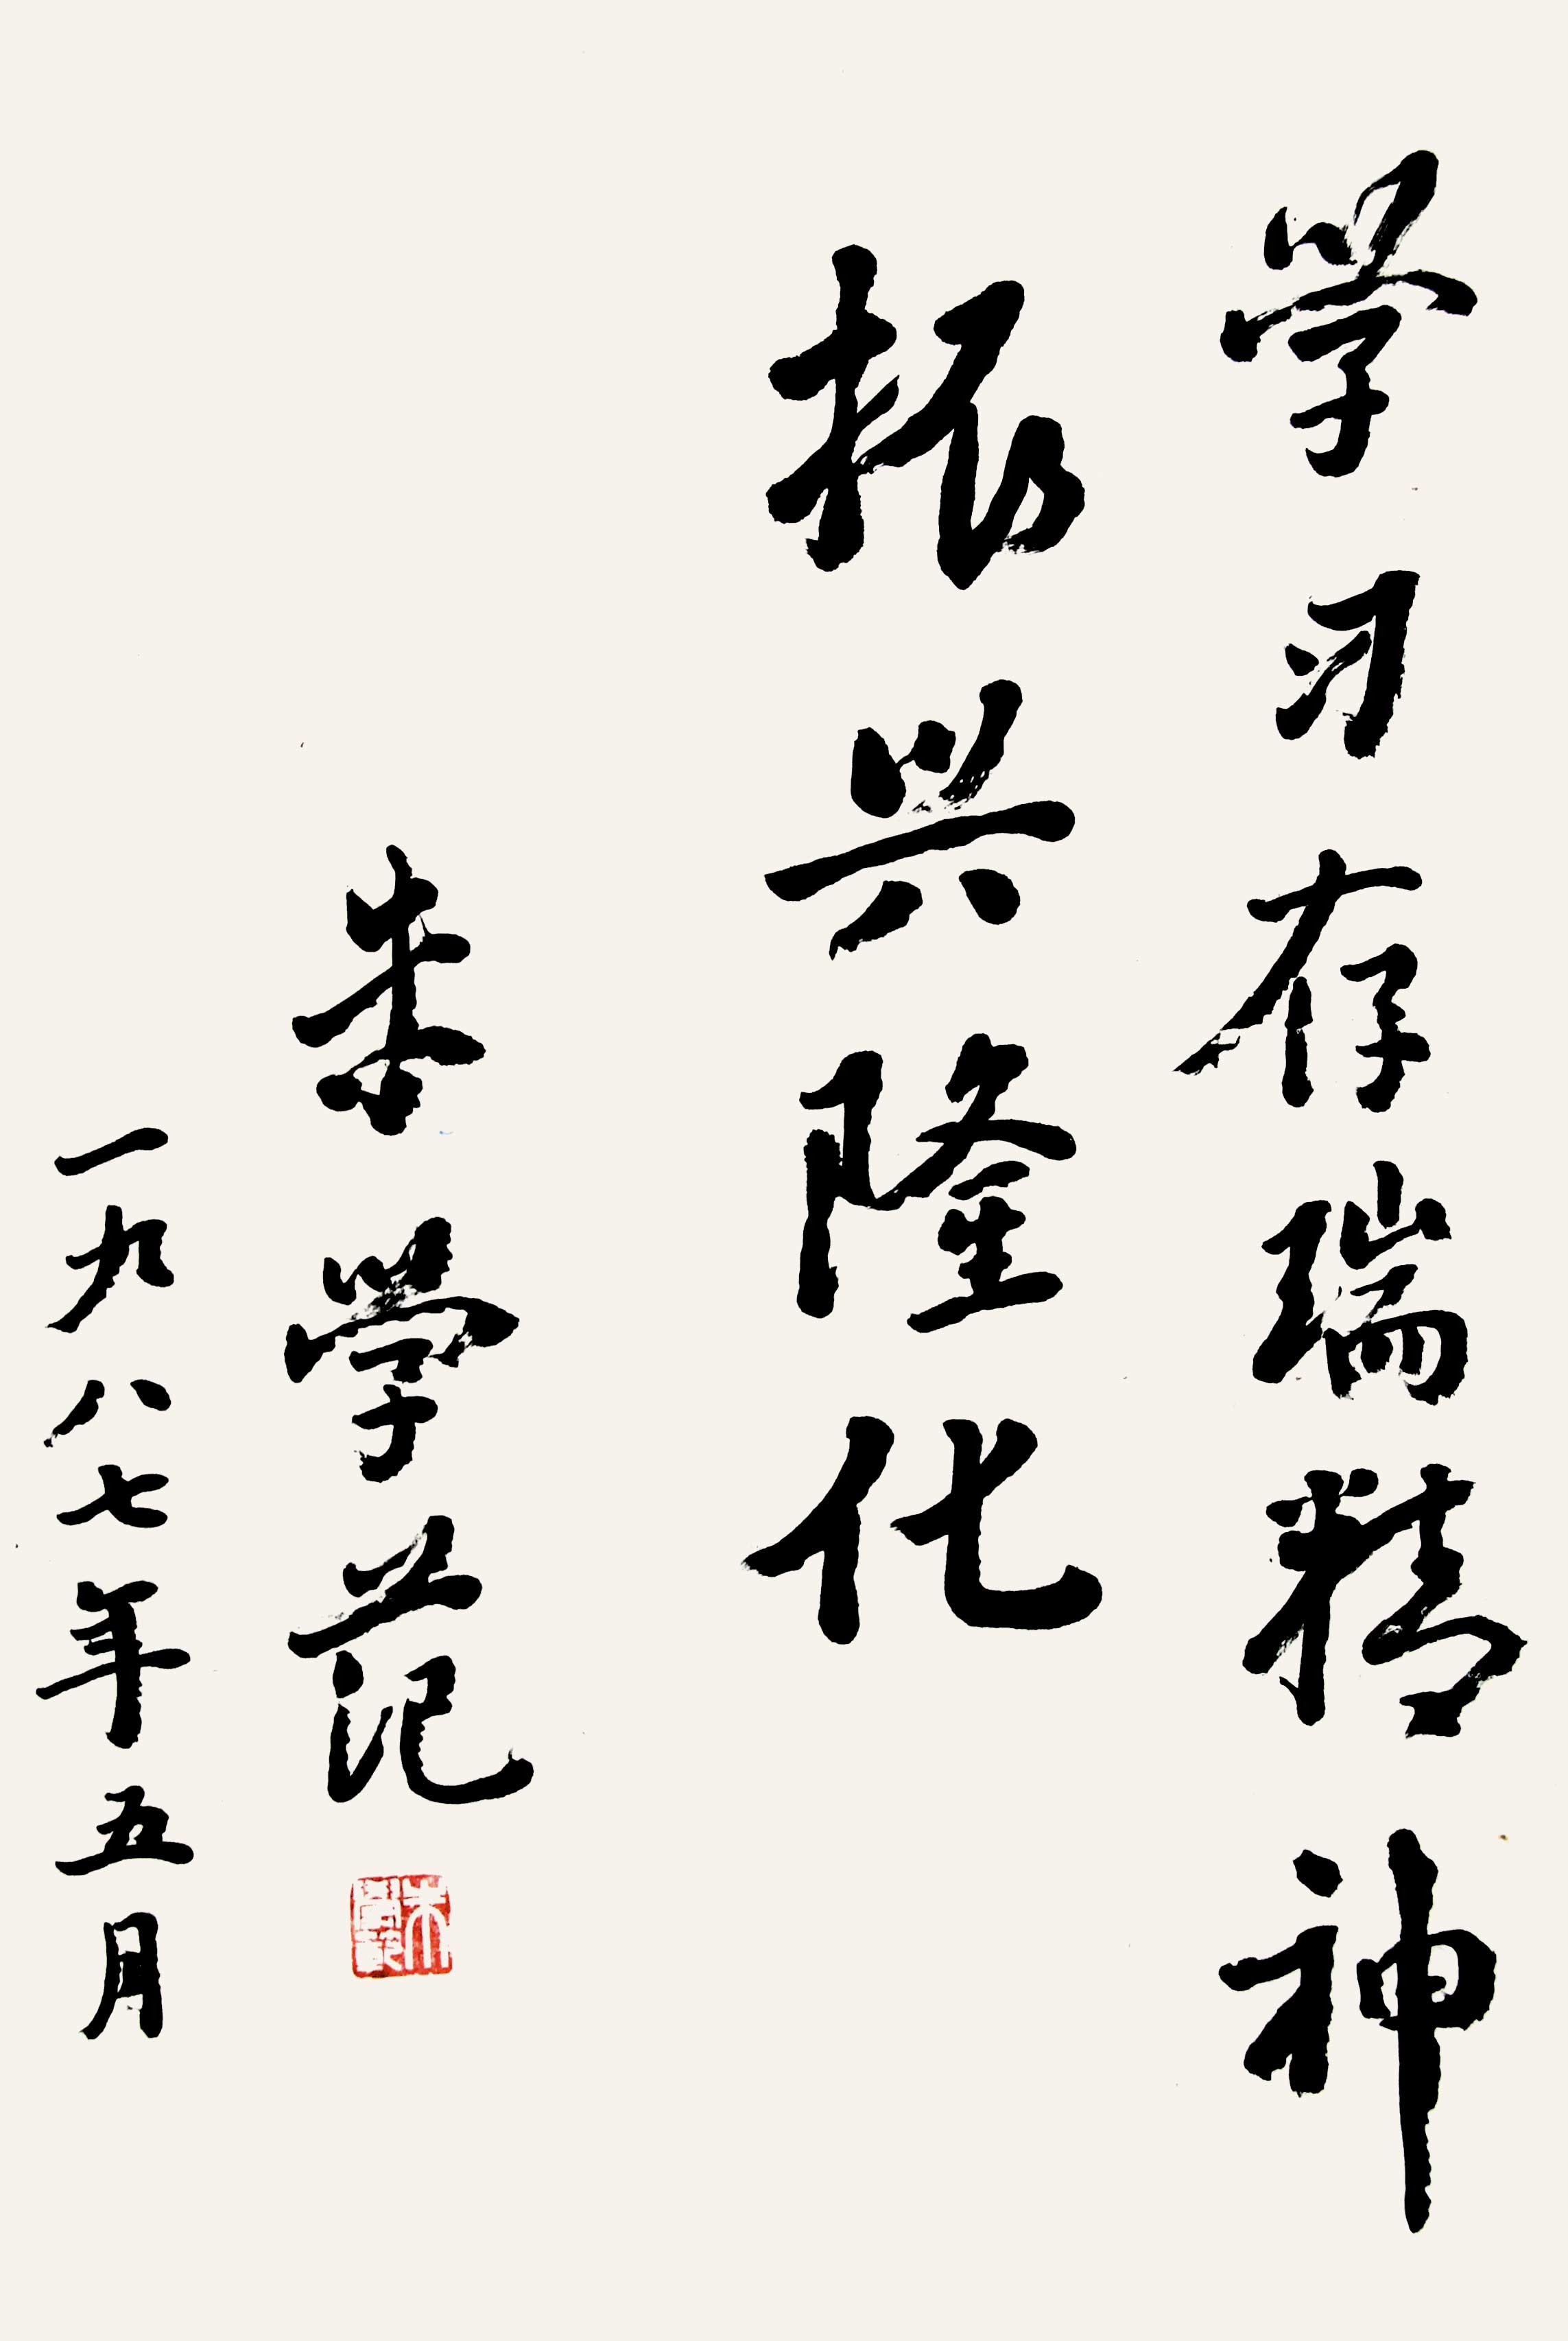 学习存瑞精神
振兴隆化
朱学范
一九八七年五月
朱學範